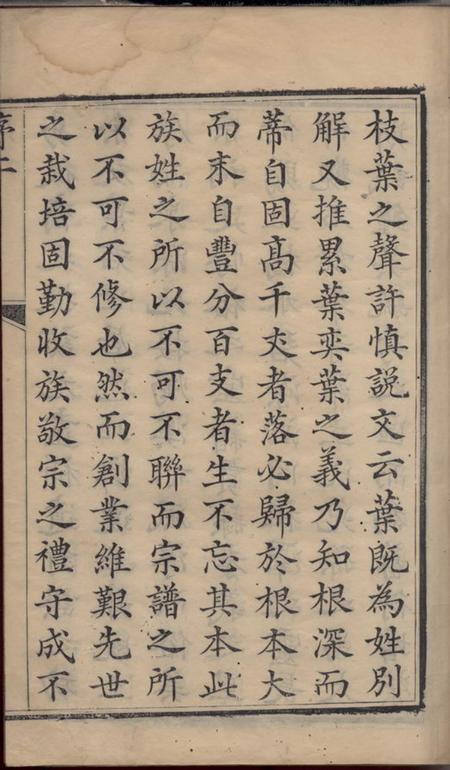 枝葉之聲許慎説文云葉既為姓別
解又推累葉奕葉之義乃知根深而
蒂自固高千丈者落必歸於根本大
而末自豐分百支者生不忘其本此
族姓之所以不可不聯而宗譜之所
以不可不修也然而創業維艱先世
之栽培固勤收族敬宗之禮守成不
序二